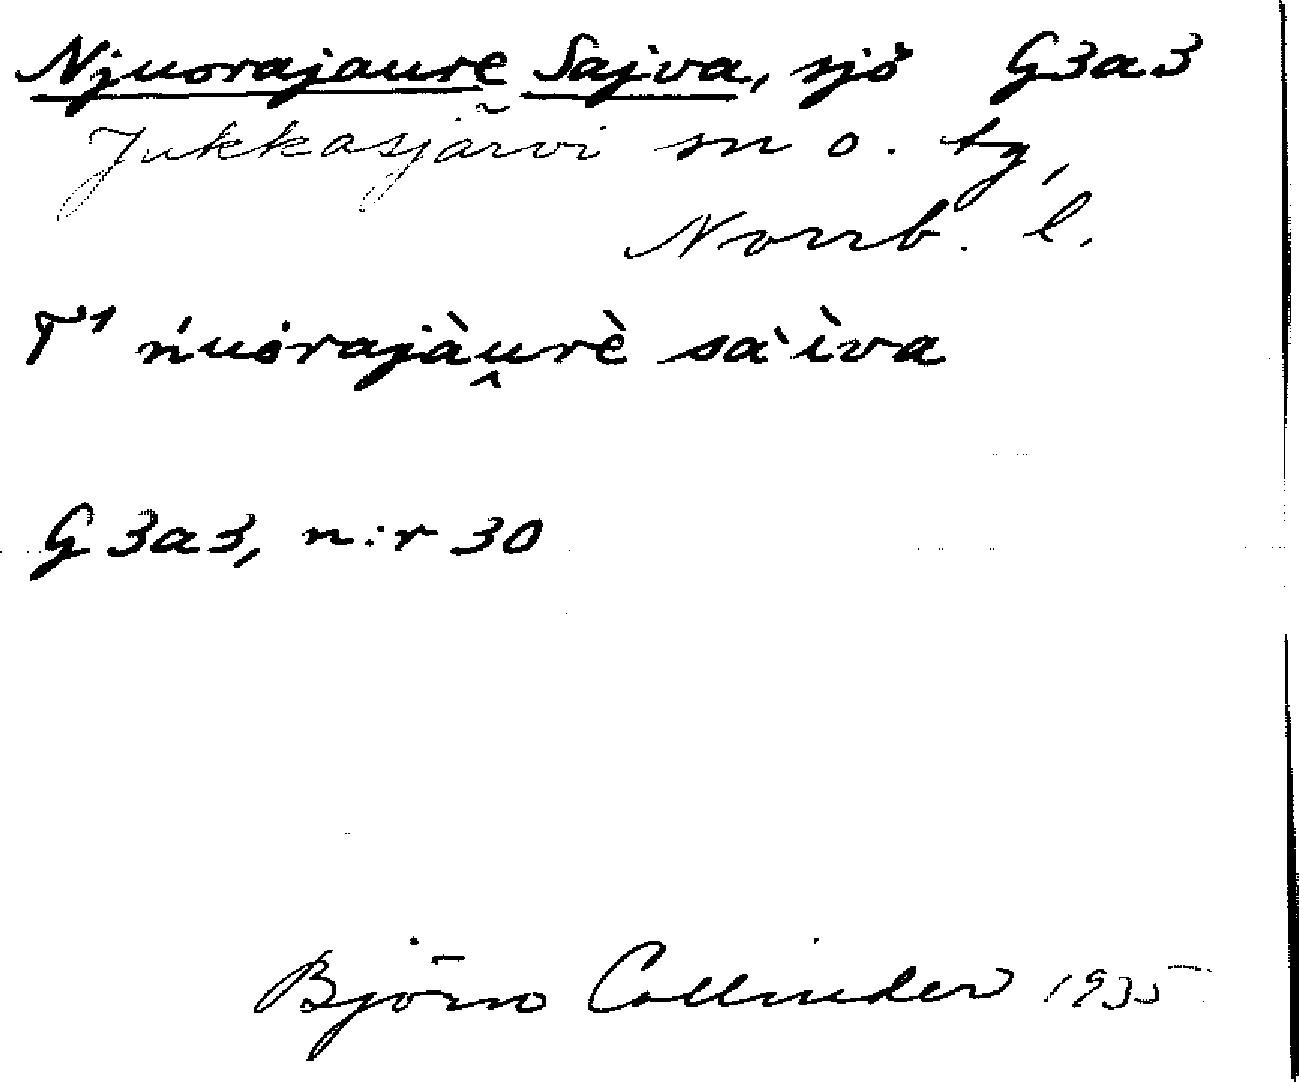 Njuorajaure Sajva, sjö G3a3
Jukkasjärvi sn o. tg,
Norrb. l.
T¹ ńuȯrajàu̯rè sàìva
G3a3, n:r 30
Björn Collinder 1935